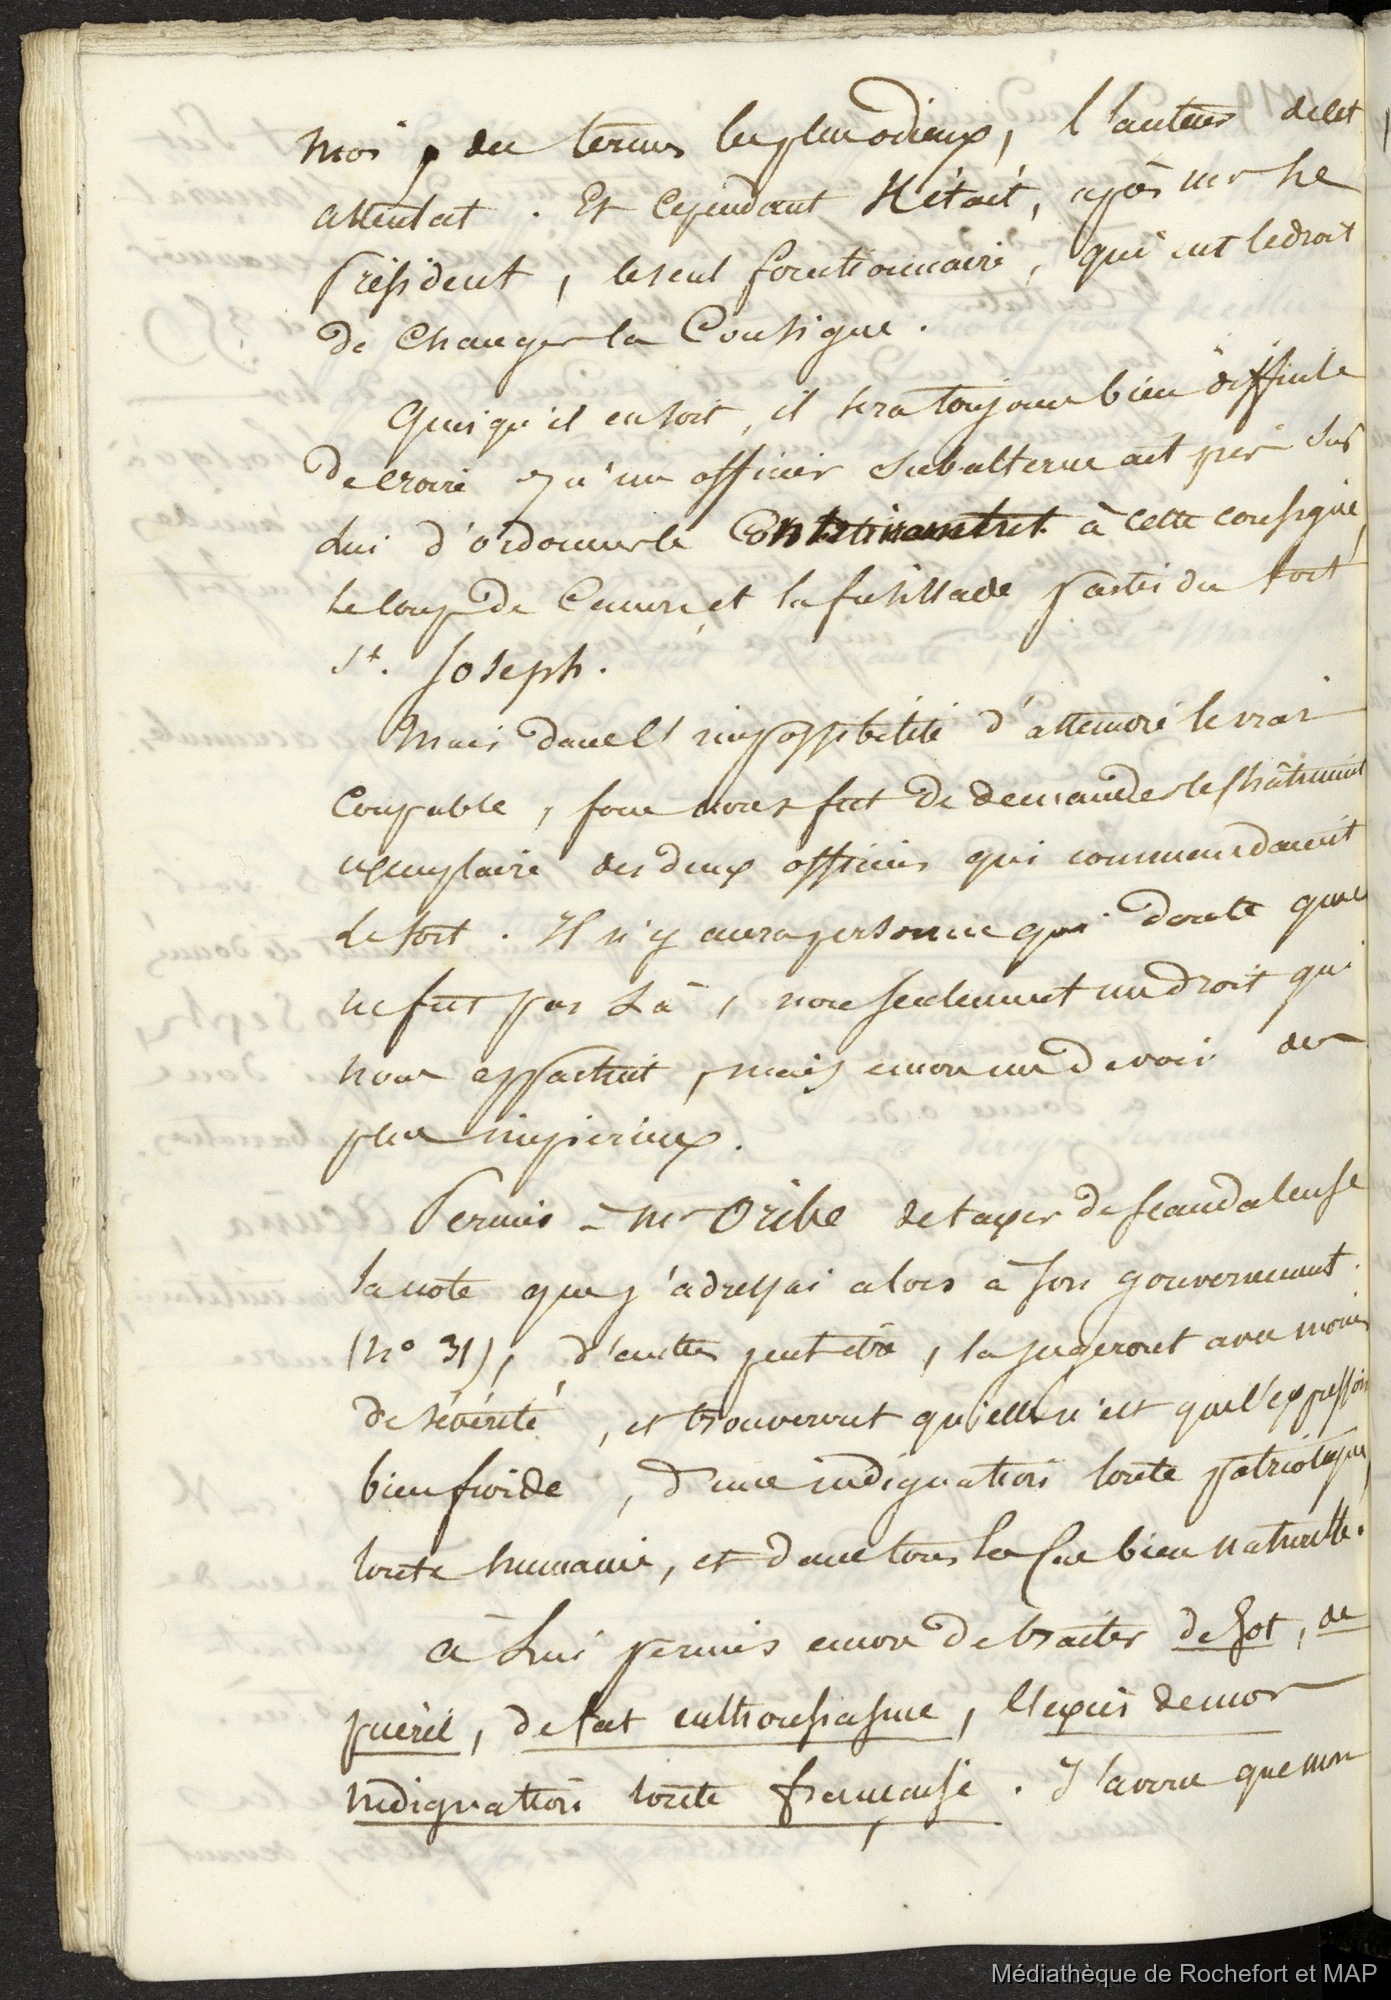 moi, des termes les plus odieux, l'auteur de cet
attentat. Et cependant il était, après mr le
Président, le seul fonctionnaire, qui eut le droit
de changer la Consigne.
Quoiqu'il en soit, il sera toujours bien difficile
de croire qu'un officier subalterne ait pris sur
lui d'ordonner le à cette consigne,
le coup de Canon, et la fusillade partis du fort
St. Joseph.
Mais dans l'impossibilité d'atteindre le vrai
Coupable, force nous fut de demander le Châtiment
exemplaire des deux officiers qui commandaient
le fort. Il n'y aura personne qui doute que ce
ne fut pas là, non seulement un droit qui
nous appartint, mais encore un devoir des
plus impérieux.
Permis à Mr Oribe de taxer de scandaleuse
la note que j'adressai alors à son gouvernement.
(No 31), d'autres peut être, la jugeront avec moins
de sévérité, et trouveront qu'elle n'est que l'expression
bien froide, d'une indignation toute patriotique,
toute humaine, et dans tous les Cas bien naturelle.
à lui permis encore de traiter de sot, de
puéril, de fat enthousiasme, l'excès de mon
indignation toute française. J'avoue que mon
Médiathèque de Rochefort et MAP